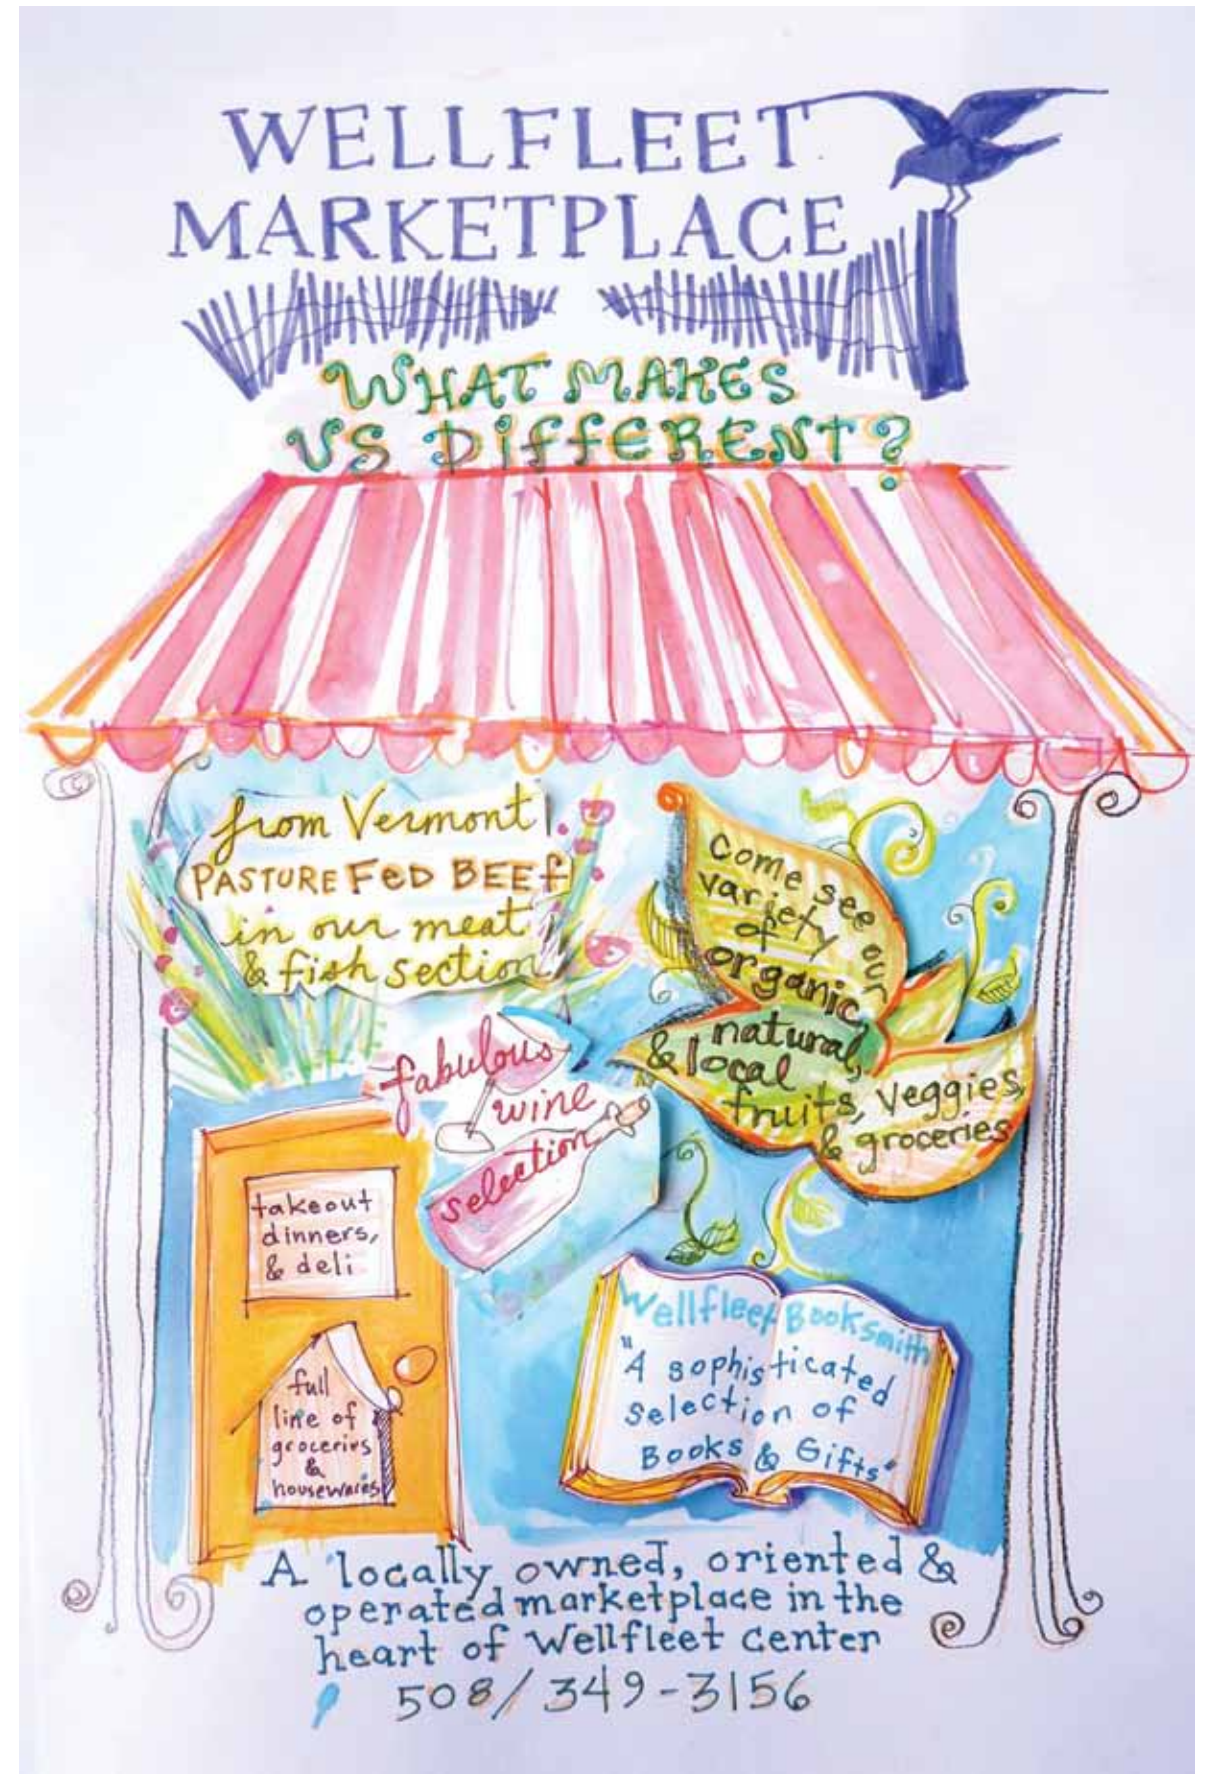 WELLFLEET
MARKETPLACE
WHAT MAKES
US DiffERENT?
from Vermont
PASTURE FeD BEEf
in our meat
& fish section
Come see our
variety
of
organic,
natural,
& local
fruits, veggies,
& groceries
fabulous
wine
selection
takeout
dinners,
& deli
full
line of
groceries
&
housewares
Wellfleet Booksmith
"A sophisticated
Selection of
Books & Gifts"
A locally owned, oriented &
operated marketplace in the
heart of Wellfleet center
508/349-3156